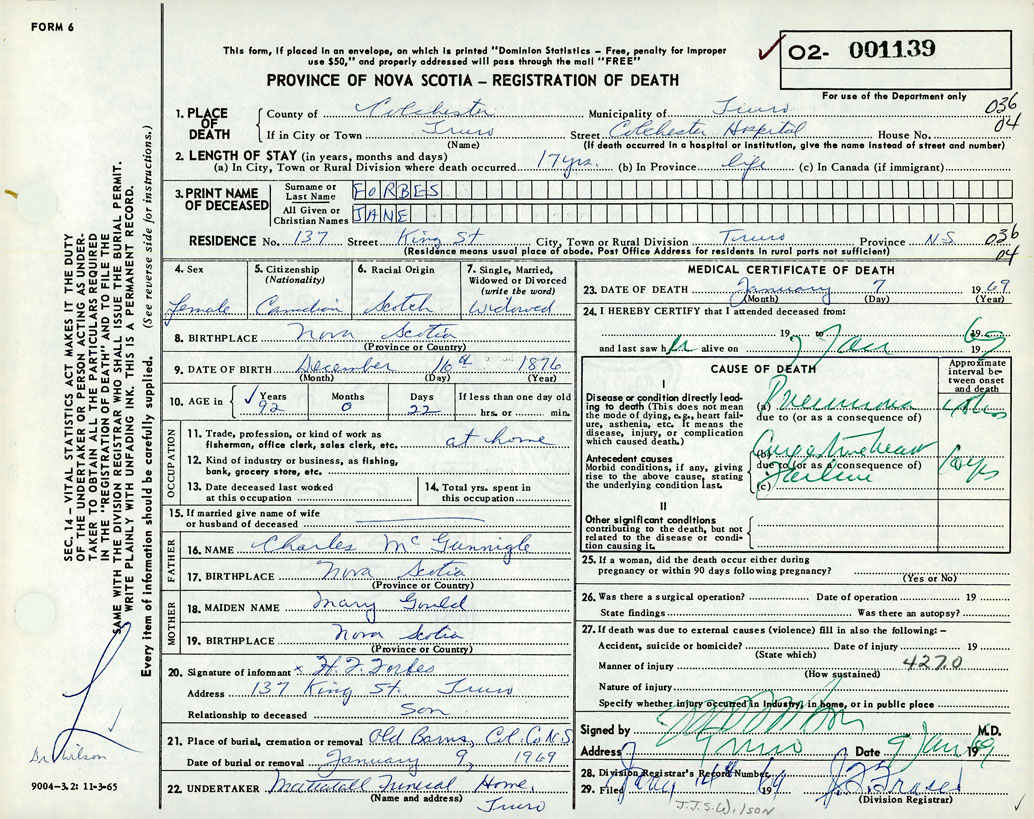 FORM 6
This form, if placed in an envelope, on which is printed "Dominion Statistics – Free, penalty for improper
use $50," and properly addressed will pass through the mail "FREE"
PROVINCE OF NOVA SCOTIA – REGISTRATION OF DEATH
O2- 001139
For use of the Department only
036
04
1. PLACE OF DEATH
County of Colchester Municipality of Truro
If in City or Town Truro Street Colchester Hospital House No.
(Name) (If death occurred in a hospital or institution, give the name instead of street and number)
2. LENGTH OF STAY (in years, months and days)
(a) In City, Town or Rural Division where death occurred 17 yrs. (b) In Province life (c) In Canada (if immigrant)
3. PRINT NAME OF DECEASED
Surname or Last Name FORBES
All Given or Christian Names JANE
RESIDENCE No. 137 Street King St City, Town or Rural Division Truro Province N.S.
(Residence means usual place of abode. Post Office Address for residents in rural parts not sufficient)
036
04
4. Sex
Female
5. Citizenship (Nationality)
Canadian
6. Racial Origin
Scotch
7. Single, Married, Widowed or Divorced (write the word)
Widowed
8. BIRTHPLACE Nova Scotia
(Province or Country)
9. DATE OF BIRTH December 16th 1876
(Month) (Day) (Year)
10. AGE in Years Months Days If less than one day old
92 0 22 hrs. or min.
OCCUPATION
11. Trade, profession, or kind of work as
fisherman, office clerk, sales clerk, etc. at home
12. Kind of industry or business, as fishing,
bank, grocery store, etc.
13. Date deceased last worked
at this occupation
14. Total yrs. spent in
this occupation
15. If married give name of wife
or husband of deceased
FATHER
16. NAME Charles McGunnigle
17. BIRTHPLACE Nova Scotia
(Province or Country)
MOTHER
18. MAIDEN NAME Mary Gould
19. BIRTHPLACE Nova Scotia
(Province or Country)
20. Signature of informant x H. F. Forbes
Address 137 King St. Truro
Relationship to deceased Son
21. Place of burial, cremation or removal Old Barns, Col. Co N.S
Date of burial or removal January 9, 1969
22. UNDERTAKER Mattatall Funeral Home,
(Name and address) Truro
MEDICAL CERTIFICATE OF DEATH
23. DATE OF DEATH January 7 1969
(Month) (Day) (Year)
24. I HEREBY CERTIFY that I attended deceased from:
19 to 19
and last saw her alive on 7 Jan 1969
CAUSE OF DEATH
Approximate interval between onset and death
I
Disease or condition directly lead-
ing to death (This does not mean
the mode of dying, e.g., heart fail-
ure, asthenia, etc. It means the
disease, injury, or complication
which caused death.)
(a) Pneumonia
due to (or as a consequence of)
Antecedent causes
Morbid conditions, if any, giving
rise to the above cause, stating
the underlying condition last.
(b) Congestive heart
due to (or as a consequence of)
(c) Failure
II
Other significant conditions
contributing to the death, but not
related to the disease or condi-
tion causing it.
25. If a woman, did the death occur either during
pregnancy or within 90 days following pregnancy?
(Yes or No)
26. Was there a surgical operation? Date of operation 19
State findings Was there an autopsy?
27. If death was due to external causes (violence) fill in also the following: –
Accident, suicide or homicide? Date of injury 19
(State which)
Manner of injury 4270
(How sustained)
Nature of injury
Specify whether injury occurred in industry, in home, or in public place
Signed by M.D.
Address Truro Date 9 Jan 1969
28. Division Registrar's Record Number
29. Filed Jany 14th 69 J. F. Fraser
(Division Registrar)
J.J.S. Wilson
SEC. 14 – VITAL STATISTICS ACT MAKES IT THE DUTY
OF THE UNDERTAKER OR PERSON ACTING AS UNDER-
TAKER TO OBTAIN ALL THE PARTICULARS REQUIRED
IN THE "REGISTRATION OF DEATH" AND TO FILE THE
SAME WITH THE DIVISION REGISTRAR WHO SHALL ISSUE THE BURIAL PERMIT.
WRITE PLAINLY WITH UNFADING INK. THIS IS A PERMANENT RECORD.
Every item of information should be carefully supplied. (See reverse side for instructions.)
Dr Wilson
9004-3.2: 11-3-65